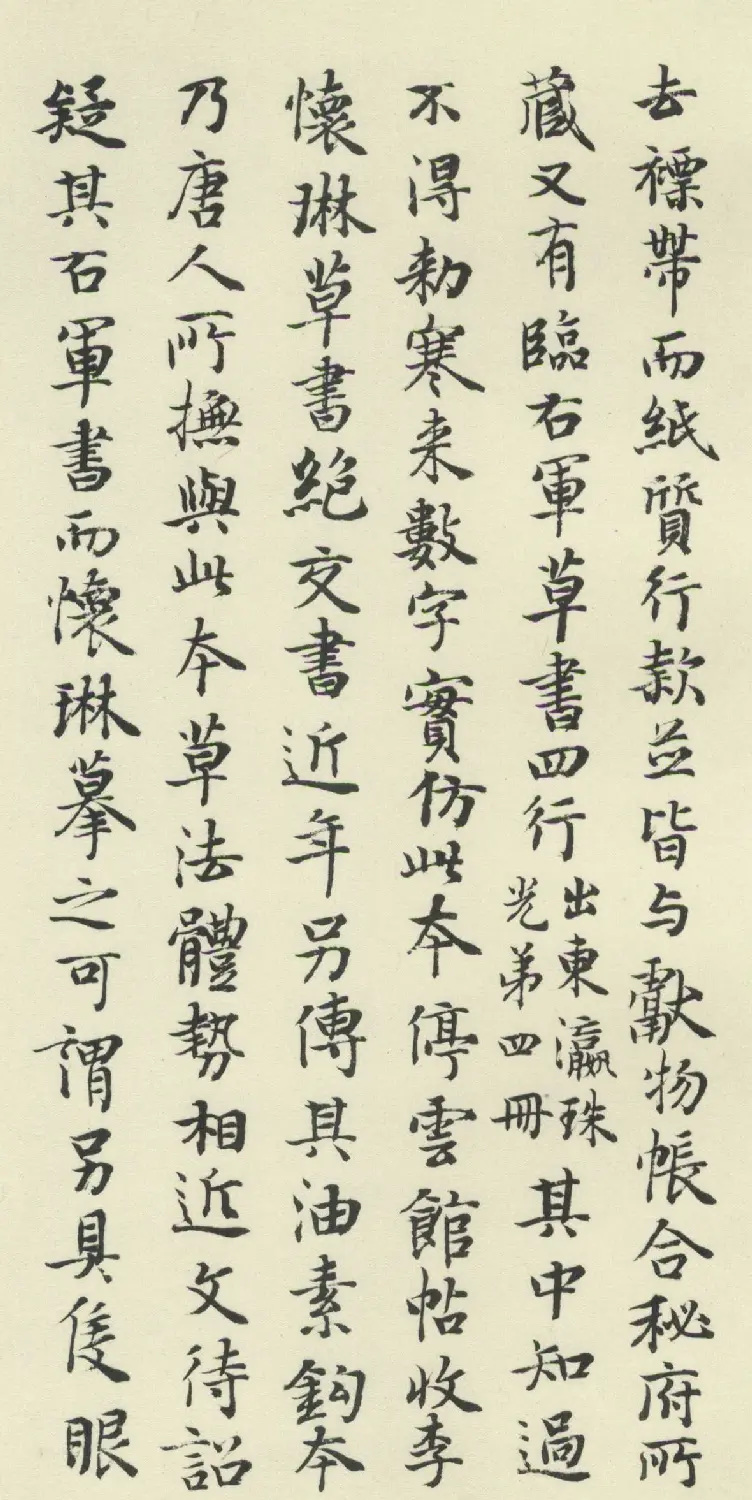 去褾帶而紙質行款並皆与獻物帳合秘府所
藏又有臨右軍草書四行出東瀛珠光第四冊其中知過
不得勑寒来數字實仿此本停雲館帖收李
懷琳草書絕交書近年另傳其油素鈎本
乃唐人所撫與此本草法體勢相近文待詔
疑其右軍書而懷琳摹之可謂另具隻眼